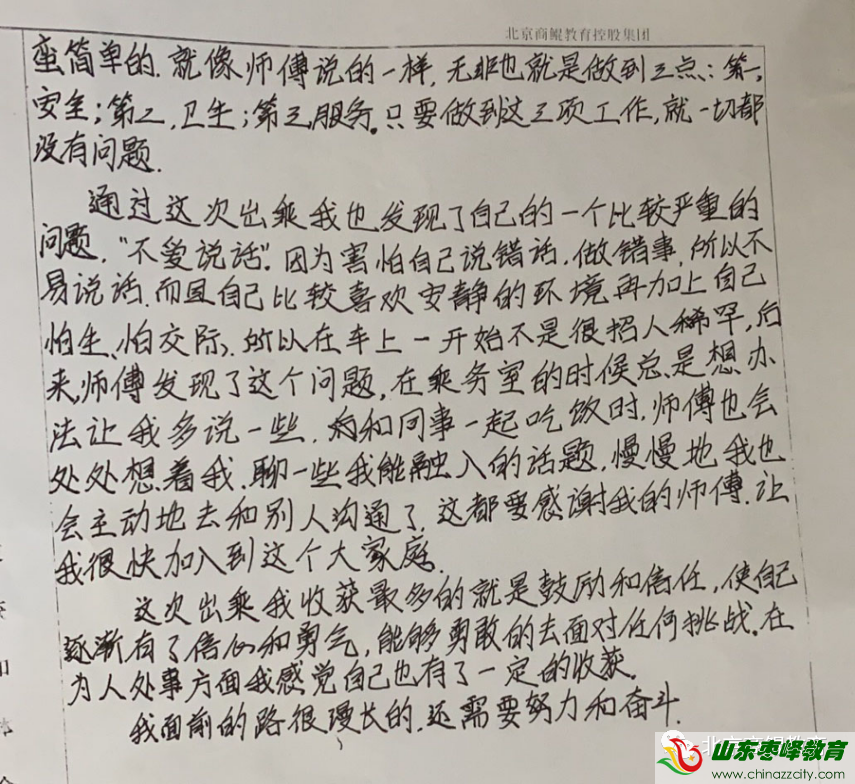 北京商鲲教育控股集团
蛮简单的.就像师傅说的一样,无非也就是做到三点:第一,
安全;第二,卫生;第三,服务。只要做到这三项工作,就一切都
没有问题.
通过这次出乘我也发现了自己的一个比较严重的
问题,"不爱说话".因为害怕自己说错话,做错事,所以不
易说话.而且自己比较喜欢安静的环境再加上自己
怕生、怕交际,所以在车上一开始不是很招人稀罕,后
来,师傅发现了这个问题,在乘务室的时候总是想办
法让我多说一些.和同事一起吃饭时,师傅也会
处处想着我,聊一些我能融入的话题,慢慢地我也
会主动地去和别人沟通了.这都要感谢我的师傅.让
我很快加入到这个大家庭.
这次出乘我收获最多的就是鼓励和信任,使自己
逐渐有了信心和勇气,能够勇敢的去面对任何挑战.在
为人处事方面我感觉自己也有了一定的收获.
我面前的路很漫长的.还需要努力和奋斗.
北京商鲲教育
山东枣峰教育
www.chinazzcity.com